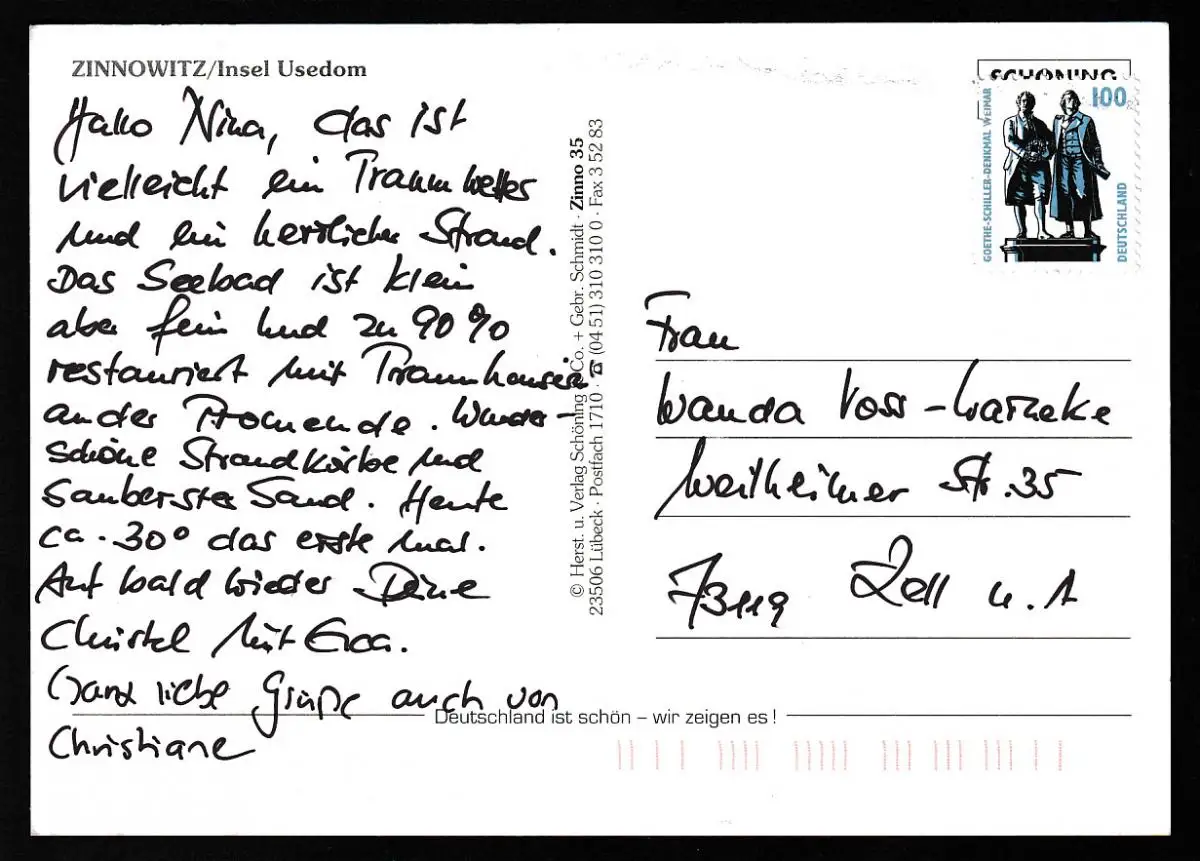 ZINNOWITZ/Insel Usedom
Hallo Nina, das ist
vielleicht ein Traumwetter
und ein herrlicher Strand.
Das Seebad ist klein
aber fein und zu 90%
restauriert mit Traumhäusern
an der Promende. Wunder-
schöne Strandkörbe und
sauberster Sand. Heute
ca. 30° das erste mal.
Auf bald wieder Deine
Christel mit Eva.
Ganz liebe Grüße auch von
Christiane
© Herst. u. Verlag Schöning Co. + Gebr. Schmidt · Zinno 35
23506 Lübeck · Postfach 1710 · ☎ (04 51) 310 310 0 · Fax 3 52 83
SCHÖNING
100
GOETHE-SCHILLER-DENKMAL WEIMAR
DEUTSCHLAND
Frau
Wanda Voss-Warneke
Weilheimer Str. 35
73119 Zell u. A
Deutschland ist schön – wir zeigen es!